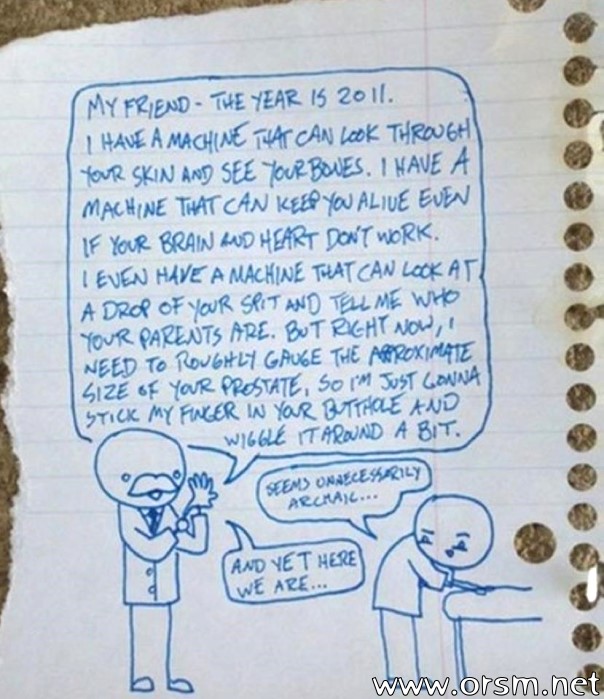 MY FRIEND - THE YEAR IS 2011.
I HAVE A MACHINE THAT CAN LOOK THROUGH
YOUR SKIN AND SEE YOUR BONES. I HAVE A
MACHINE THAT CAN KEEP YOU ALIVE EVEN
IF YOUR BRAIN AND HEART DON'T WORK.
I EVEN HAVE A MACHINE THAT CAN LOOK AT
A DROP OF YOUR SPIT AND TELL ME WHO
YOUR PARENTS ARE. BUT RIGHT NOW, I
NEED TO ROUGHLY GAUGE THE APPROXIMATE
SIZE OF YOUR PROSTATE, SO I'M JUST GONNA
STICK MY FINGER IN YOUR BUTTHOLE AND
WIGGLE IT AROUND A BIT.
SEEMS UNNECESSARILY
ARCHAIC...
AND YET HERE
WE ARE...
www.orsm.net